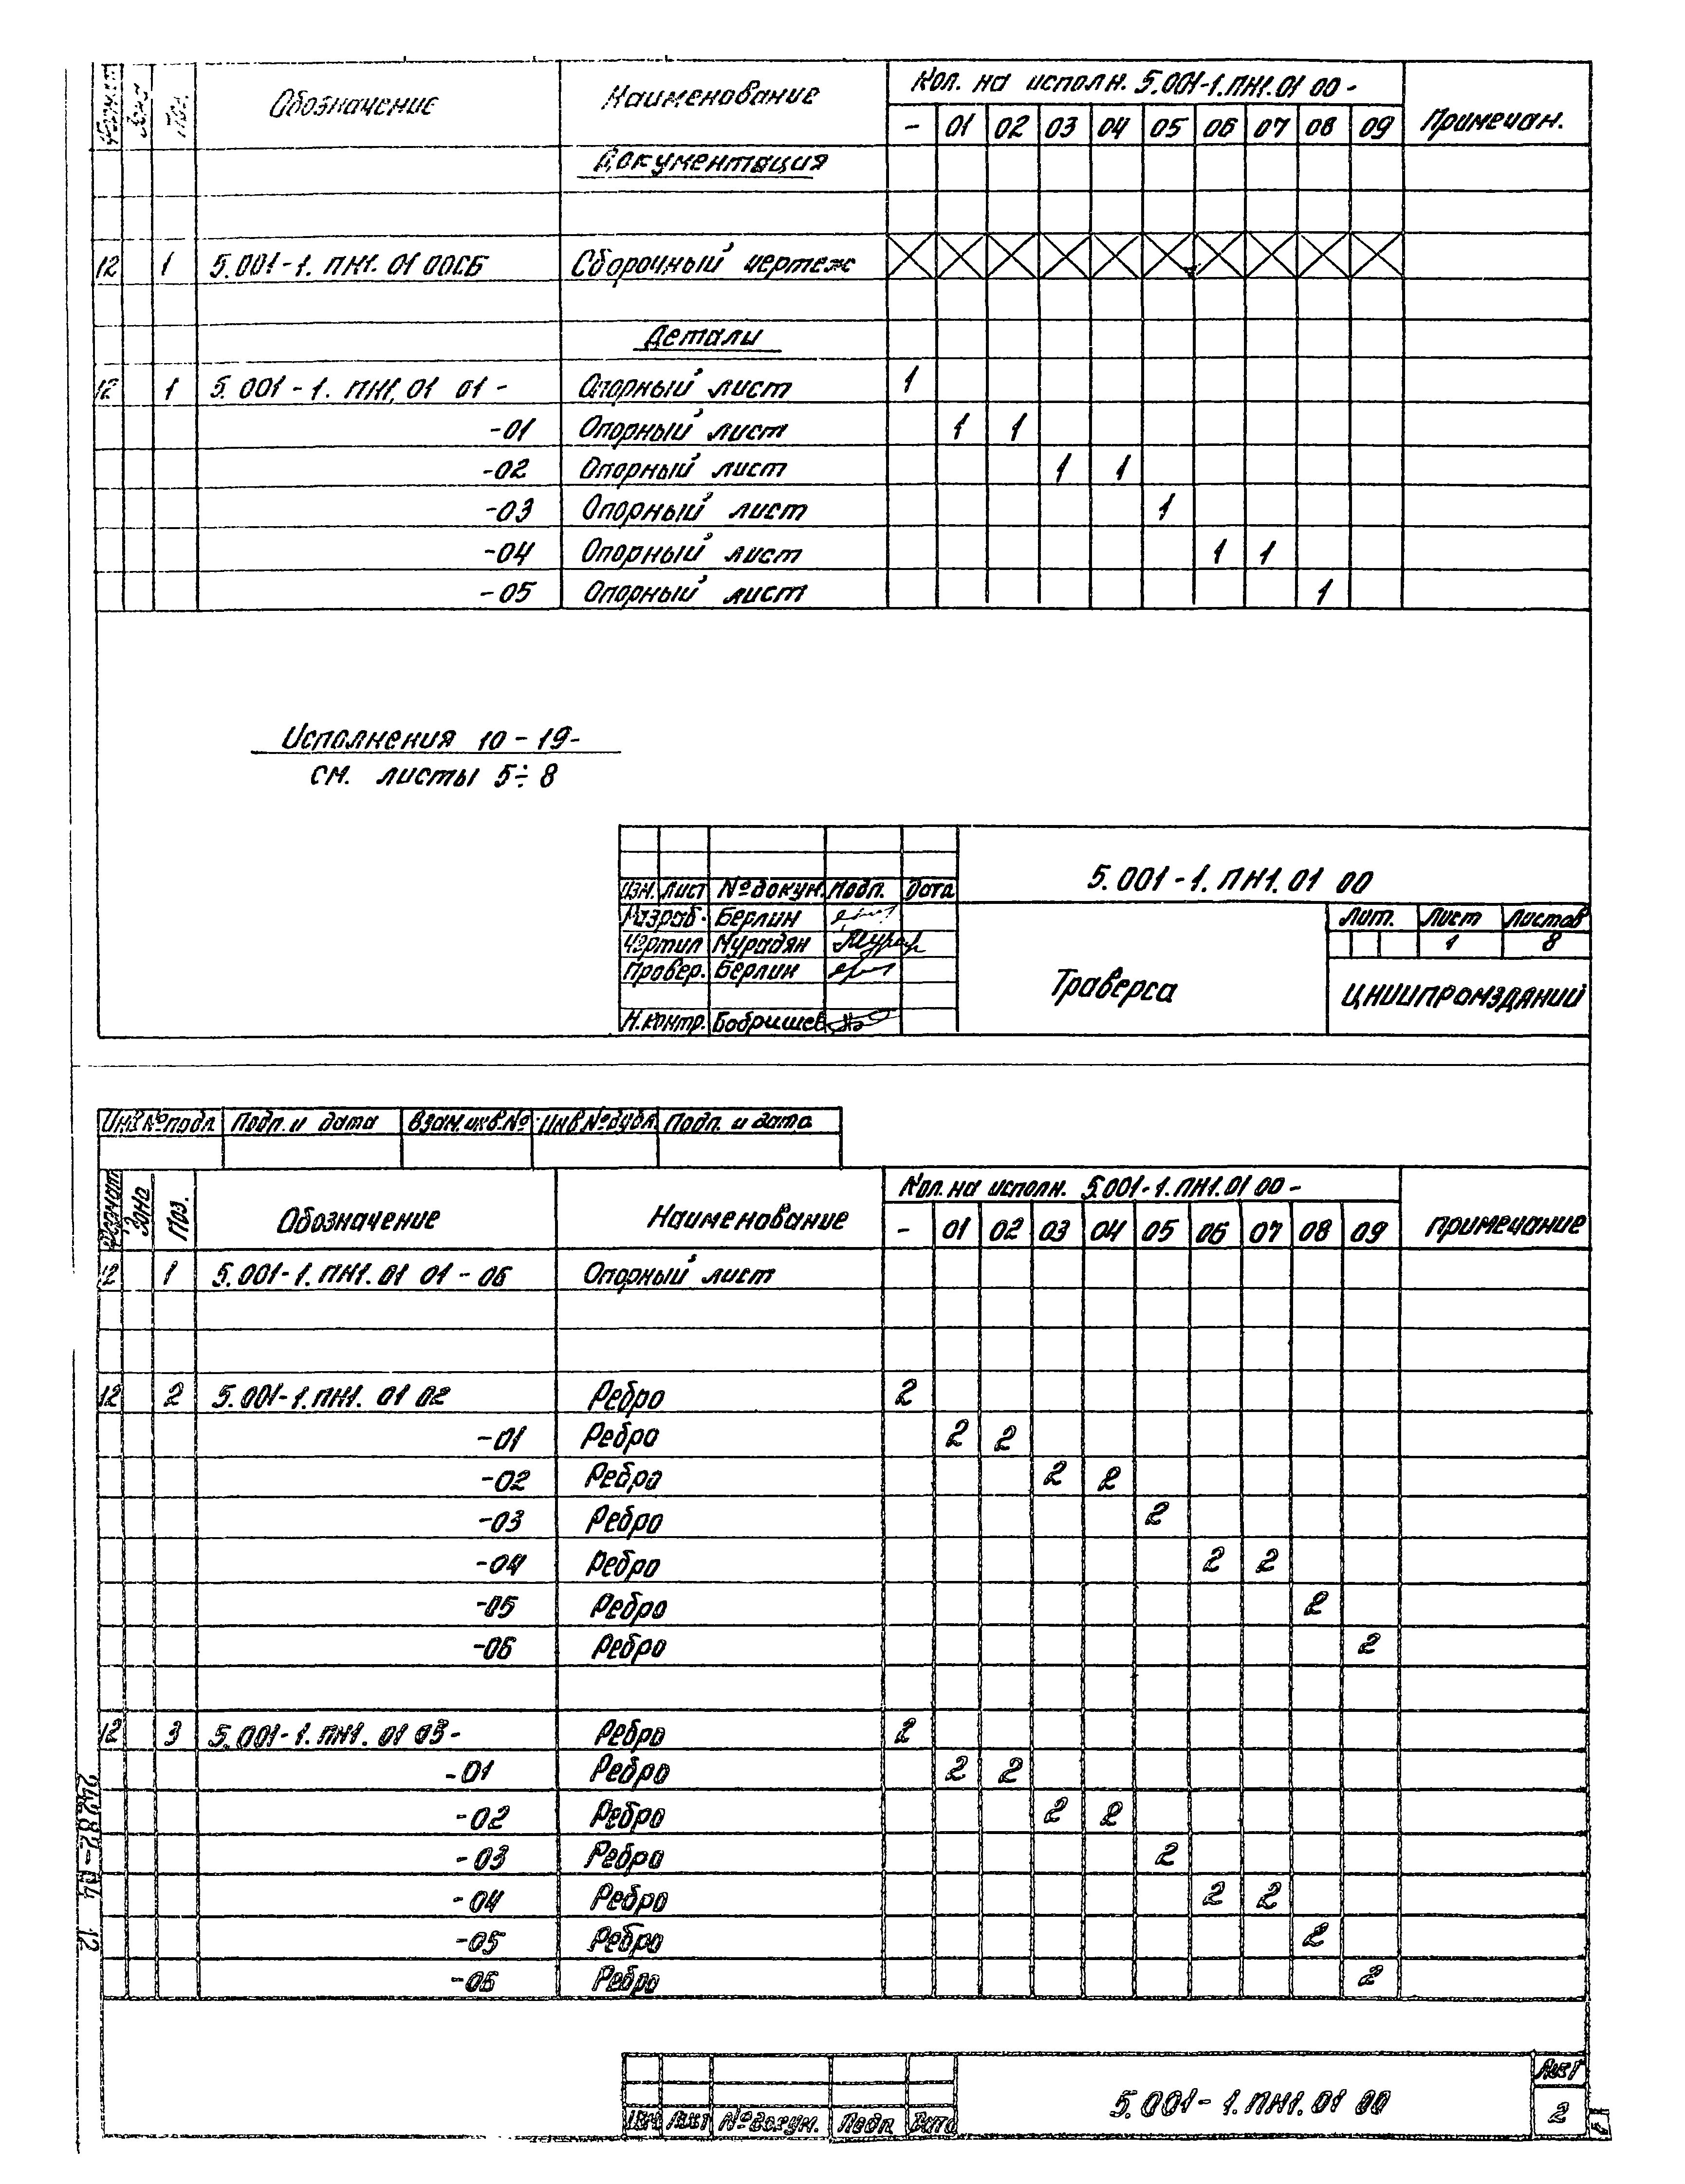 Формат Зона Поз. Обозначение Наименование Кол. на исполн. 5.001-1.ПН1.01 00 - Примечан.
- 01 02 03 04 05 06 07 08 09
Документация
12 1 5.001-1. ПН1. 01 00СБ Сборочный чертеж
Детали
12 1 5.001-1. ПН1.01 01 - Опорный лист 1
-01 Опорный лист 1 1
-02 Опорный лист 1 1
-03 Опорный лист 1
-04 Опорный лист 1 1
-05 Опорный лист 1
Исполнения 10-19-
см. листы 5÷8
5.001-1. ПН1. 01 00
Изм. Лист № докум. Подп. Дата
Разраб. Берлин
Чертил Мурадян
Провер. Берлин
Н.контр. Бобришев
Траверса
Лит. Лист Листов
1 8
ЦНИИПРОМЗДАНИЙ
Инв.№подл Подп. и дата Взам.инв.№ Инв.№дубл. Подп. и дата
Формат Зона Поз. Обозначение Наименование Кол. на исполн. 5.001-1.ПН1.01 00 - Примечание
- 01 02 03 04 05 06 07 08 09
12 1 5.001-1. ПН1. 01 01 - 06 Опорный лист
12 2 5.001-1. ПН1. 01 02 Ребро 2
-01 Ребро 2 2
-02 Ребро 2 2
-03 Ребро 2
-04 Ребро 2 2
-05 Ребро 2
-06 Ребро 2
12 3 5.001-1. ПН1. 01 03 - Ребро 2
-01 Ребро 2 2
-02 Ребро 2 2
-03 Ребро 2
-04 Ребро 2 2
-05 Ребро 2
-06 Ребро 2
24282-04 12
Изм Лист № докум. Подп. Дата
5.001-1. ПН1. 01 00
Лист
2